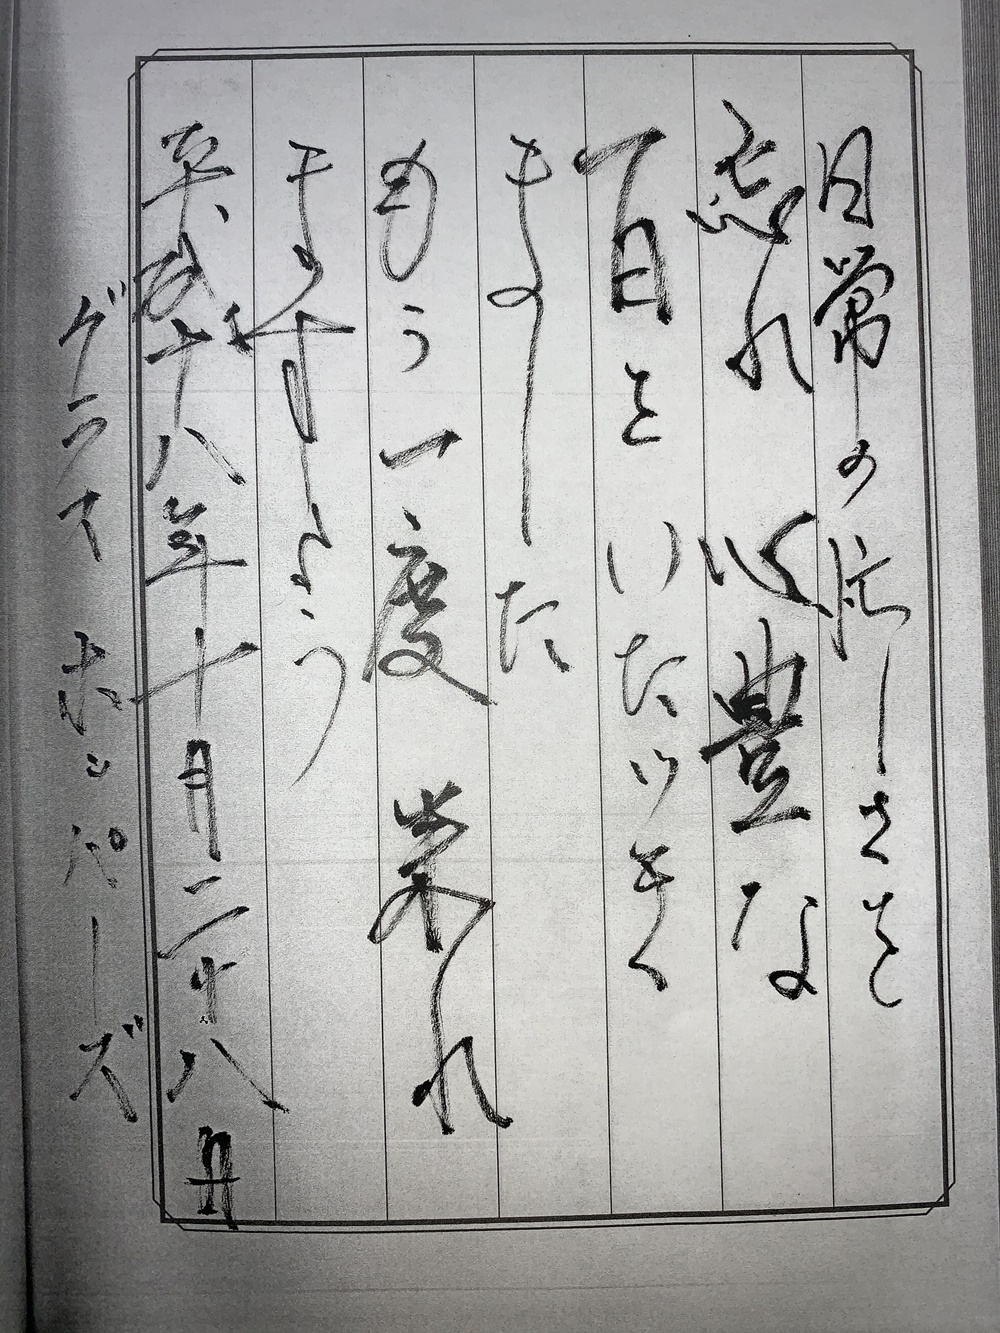 日常の忙しさを
忘れ心豊な
一日をいただき
ました
もう一度来れ
ますよう
平成十八年十月二十八日
グラスホッパーズ